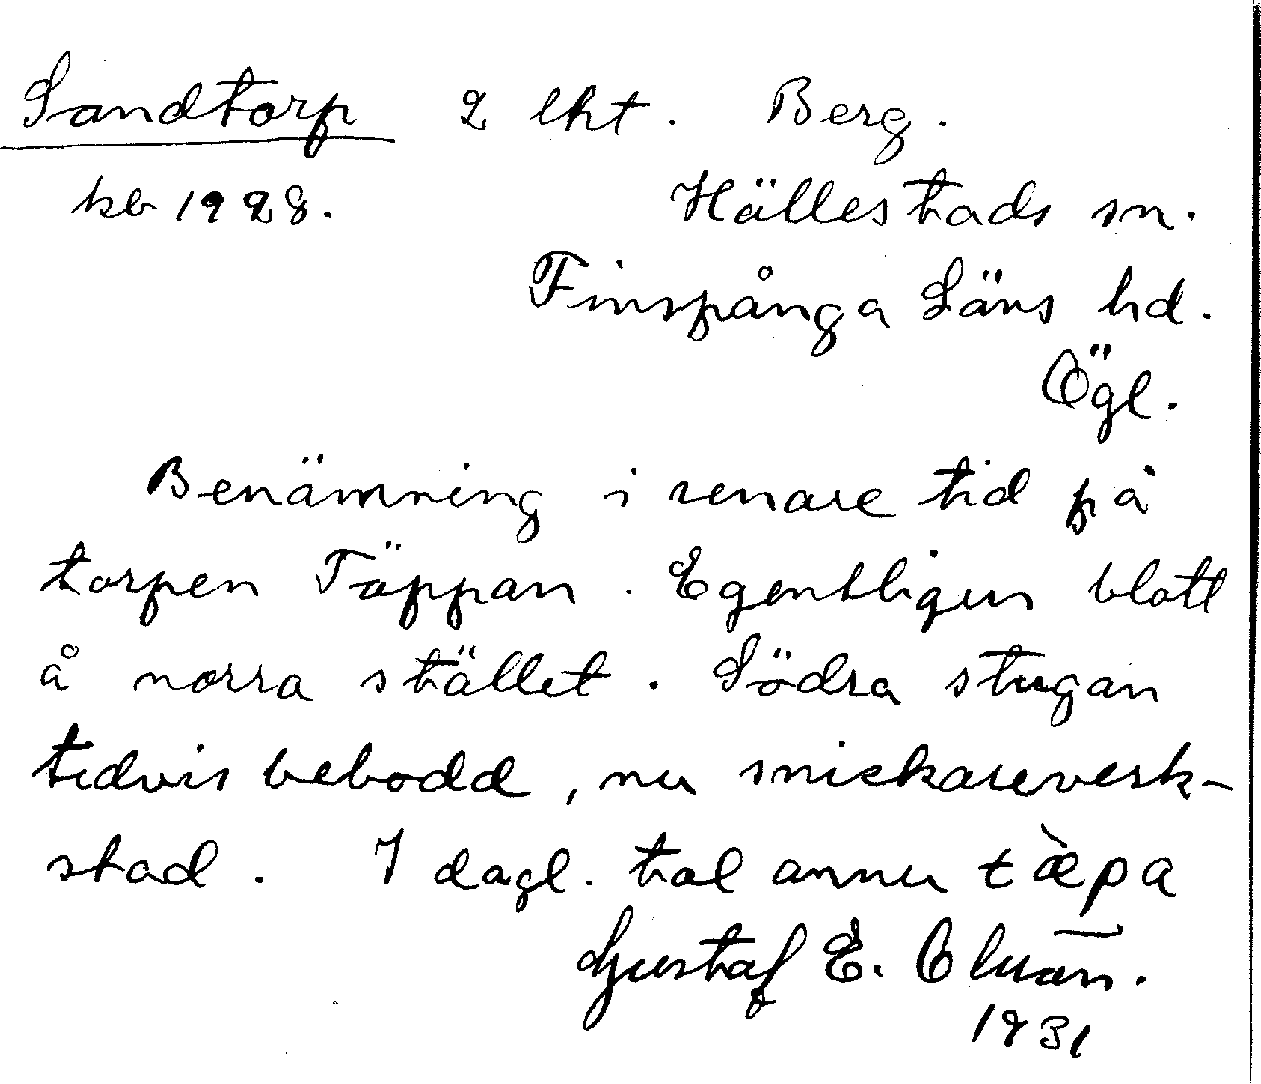 Sandtorp 2 lht. Berg.
kb 1928. Hällestads sn.
Finspånga Läns hd.
Ögl.
Benämning i senare tid på
torpen Täppan. Egentligen blott
å norra stället. Södra stugan
tidvis bebodd, nu snickareverk-
stad. I dagl. tal annu tæ̀pa
Gustaf E.
1931